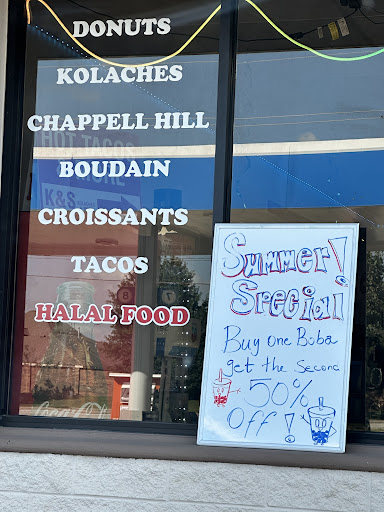 DONUTS
KOLACHES
CHAPPELL HILL
HOT TACOS
BOUDAIN
K&S
CROISSANTS
TACOS
HALAL FOOD
Summer!
Special
Buy one Boba
get the Second
50%
off!